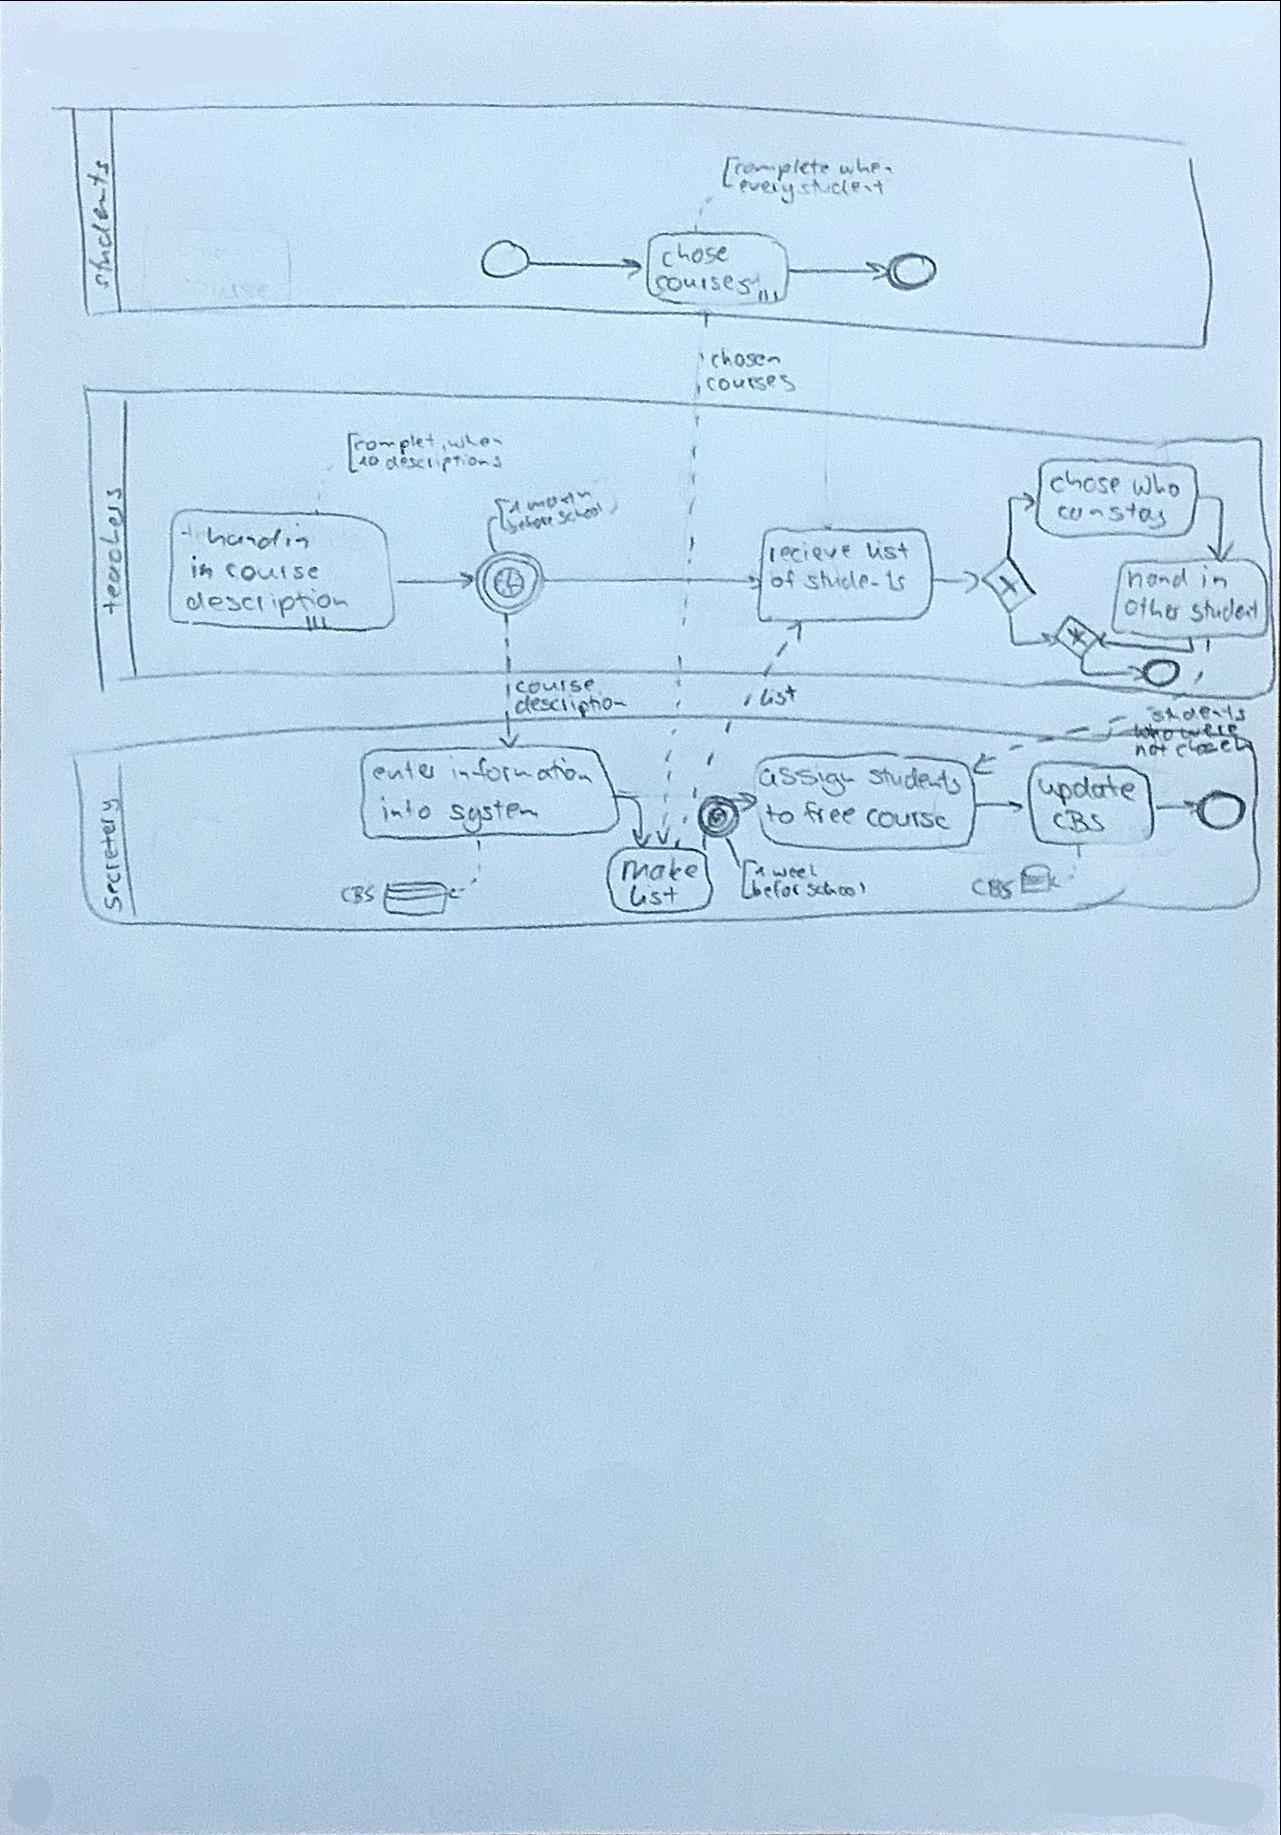 students
[complete when
every student
chose
courses
chosen
courses
teachers
[complet, when
10 descriptions
hand in
in course
description
[1 month
before school
recieve list
of students
chose who
can stay
hand in
other student
course
description
list
students
who were
not closen
Secretery
enter information
into system
CBS
make
list
[1 week
befor school
assign students
to free course
update
CBS
CBS